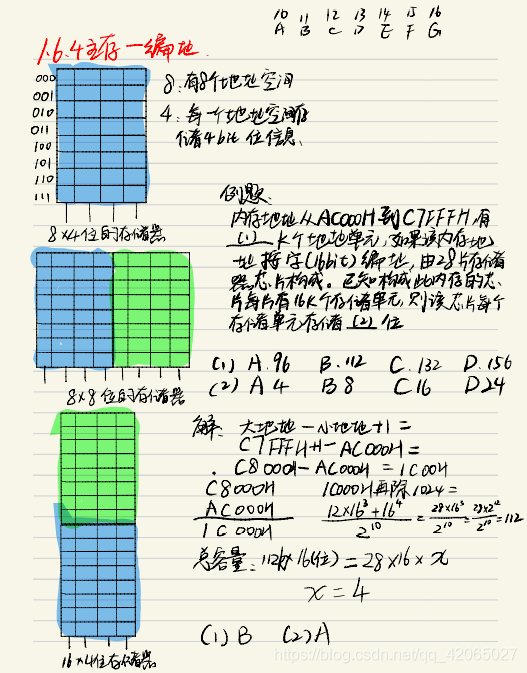 10 11 12 13 14 15 16
A B C D E F G
1.6.4主存—编址
000
001
010
011
100
101
110
111
8:有8个地址空间
4:每一个地址空间存
储着4bit位信息.
8×4位的存储器
例题:
内存地址从AC000H到C7FFFH,有
(1) K个地址单元,如果该内存地
址按字(16bit)编址,由28片存储
器芯片构成。已知构成此内存的芯
片每片有16K个存储单元,则该芯片每个
存储单元存储 (2) 位
8×8位的存储器
(1) A.96 B.112 C.132 D.156
(2) A 4 B 8 C 16 D 24
解: 大地址-小地址+1=
C7FFFH+1-AC000H=
C8000H-AC000H=1C00H
C8000H
AC000H
1C000H
1C000H再除1024=
12×16³+16⁴ / 2¹⁰ = 28×16³ / 2¹⁰ = 28×2¹² / 2¹⁰ = 112
总容量:112k×16(位)=28×16×x
x=4
(1) B (2) A
16×4位存储器
https://blog.csdn.net/qq_42065027